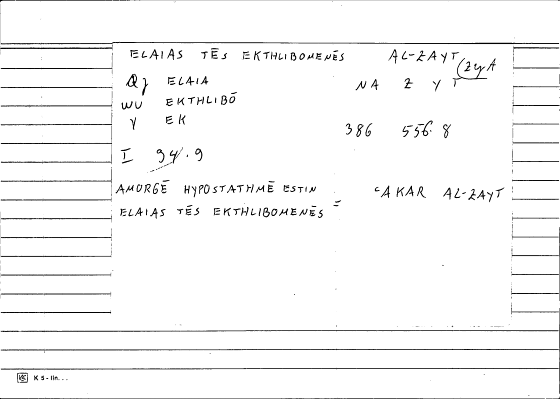 ELAIAS TĒS EKTHLIBOMENĒS AL-ZAYT (ZYA
QJ ELAIA NA Z Y T
WU EKTHLIBŌ
Y EK
386 556.8
I 94.9
AMORGĒ HYPOSTATHMĒ ESTIN ʿAKAR AL-ZAYT
ELAIAS TĒS EKTHLIBOMENĒS =
K 5 - lin. . .